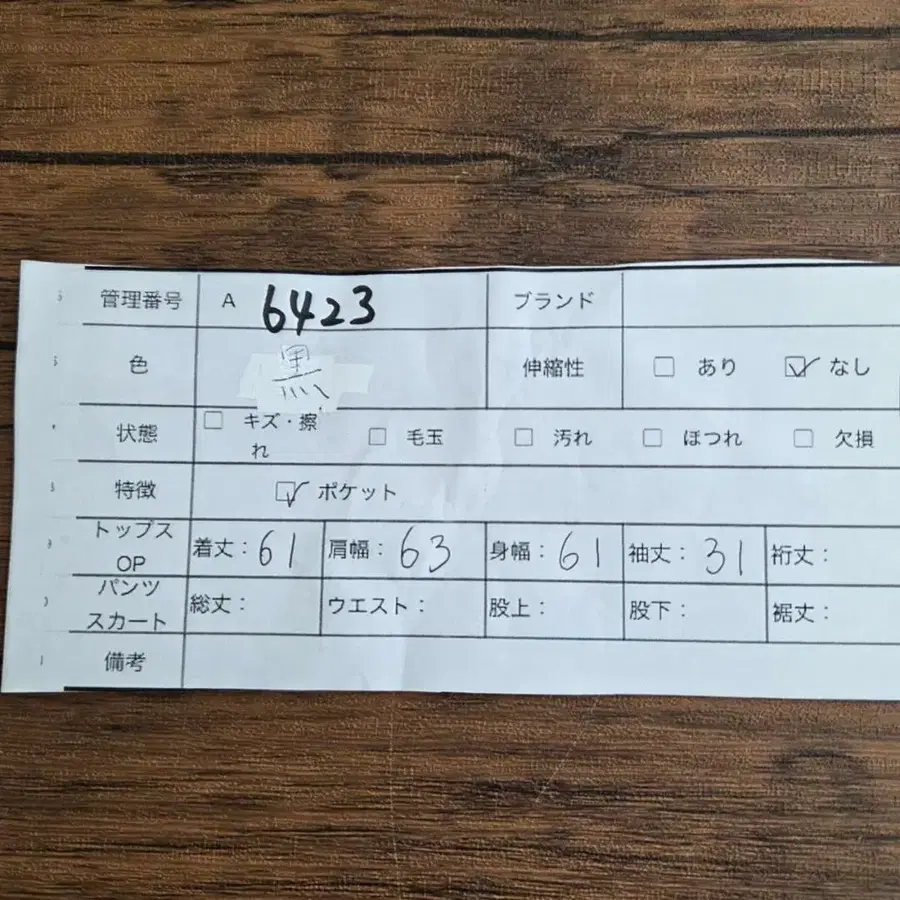 管理番号 A 6423 ブランド
色 黒 伸縮性 ☐ あり ☑ なし
状態 ☐ キズ・擦れ ☐ 毛玉 ☐ 汚れ ☐ ほつれ ☐ 欠損
特徴 ☑ ポケット
トップス OP 着丈：61 肩幅：63 身幅：61 袖丈：31 裄丈：
パンツ スカート 総丈： ウエスト： 股上： 股下： 裾丈：
備考